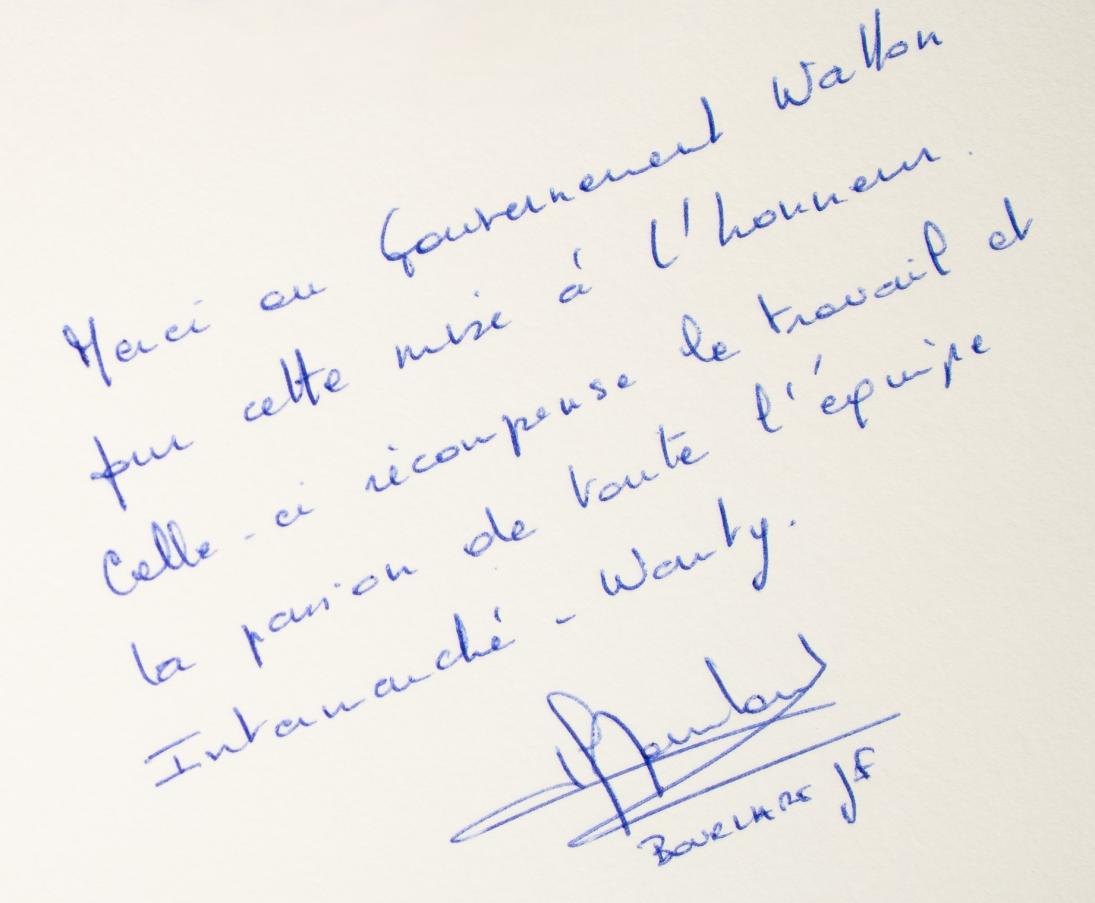 Merci au Gouvernement Wallon
pour cette mise à l'honneur.
Celle-ci récompense le travail et
la passion de toute l'équipe
Intermarché - Wanty.
BOURLART JF